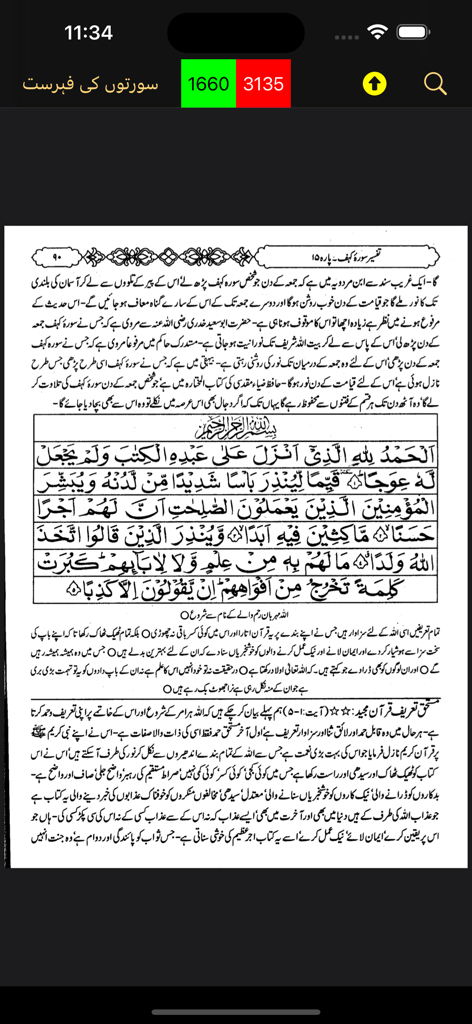 11:34
سورتوں کی فہرست
1660
3135
تفسیر سورۂ کہف۔ پارہ ۱۵
۹۰
گا- ایک غریب سند سے ابن مردویہ میں ہے کہ جمعہ کے دن جو شخص سورہ کہف پڑھ لے اس کے پیر کے تلووں سے لے کر آسمان کی بلندی
تک کا نور ملے گا جو قیامت کے دن خوب روشن ہوگا اور دوسرے جمعہ تک کے اس کے سارے گناہ معاف ہو جائیں گے- اس حدیث کے
مرفوع ہونے میں نظر ہے زیادہ اچھا تو اس کا موقوف ہونا ہی ہے- حضرت ابو سعید خدری رضی اللہ عنہ سے مروی ہے کہ جس نے سورۂ کہف جمعہ
کے دن پڑھ لی اس کے پاس سے لے کر بیت اللہ شریف تک نورانیت ہو جاتی ہے- مستدرک حاکم میں مرفوعاً مروی ہے کہ جس نے سورہ کہف
جمعہ کے دن پڑھی اس کے لئے دو جمعہ کے درمیان تک نور کی روشنی رہتی ہے- بیہقی میں ہے کہ جس نے سورۂ کہف اسی طرح پڑھی جس طرح
نازل ہوئی ہے اس کے لئے قیامت کے دن نور ہوگا- حافظ ضیاء مقدسی کی کتاب المختارہ میں ہے جو شخص جمعہ کے دن سورہ کہف کی تلاوت کر
لے گا وہ آٹھ دن تک ہر قسم کے فتنوں سے محفوظ رہے گا یہاں تک کہ اگر دجال بھی اس عرصہ میں نکلے تو وہ اس سے بھی بچا دیا جائے گا-
بسم الله الرحمن الرحيم
اَلْحَمْدُ لِلّٰهِ الَّذِيْٓ اَنْزَلَ عَلٰى عَبْدِهِ الْكِتٰبَ وَلَمْ يَجْعَلْ
لَّهٗ عِوَجًا ۱ قَيِّمًا لِّيُنْذِرَ بَاْسًا شَدِيْدًا مِّنْ لَّدُنْهُ وَيُبَشِّرَ
الْمُؤْمِنِيْنَ الَّذِيْنَ يَعْمَلُوْنَ الصّٰلِحٰتِ اَنَّ لَهُمْ اَجْرًا
حَسَنًا ۲ مَّاكِثِيْنَ فِيْهِ اَبَدًا ۳ وَّيُنْذِرَ الَّذِيْنَ قَالُوا اتَّخَذَ
اللّٰهُ وَلَدًا ۴ مَا لَهُمْ بِهٖ مِنْ عِلْمٍ وَّلَا لِاٰبَآئِهِمْ كَبُرَتْ
كَلِمَةً تَخْرُجُ مِنْ اَفْوَاهِهِمْ اِنْ يَّقُوْلُوْنَ اِلَّا كَذِبًا ۵
اللہ مہربان رحم والے کے نام سے شروع ○
تمام تعریفیں اسی اللہ کے لئے سزاوار ہیں جس نے اپنے بندے پر یہ قرآن اتارا اور اس میں کوئی کسر باقی نہ چھوڑی ○ بلکہ تمام ٹھیک ٹھاک رکھا تا کہ اپنے پاس کی
سخت سزا سے ہوشیار کر دے اور ایمان لانے اور نیک عمل کرنے والوں کو خوشخبریاں سنا دے کہ ان کے لئے بہترین بدلے ہیں ○ جس میں وہ ہمیشہ ہمیشہ رہیں
گے ○ اور ان لوگوں کو بھی ڈرا دے جو کہتے ہیں- کہ اللہ تعالیٰ اولاد رکھتا ہے ○ درحقیقت نہ تو خود انہیں اس کا علم ہے نہ ان کے باپ دادوں کو یہ تہمت بڑی بری
ہے جو ان کے منہ نکل رہی ہے نرا جھوٹ بک رہے ہیں ○
مستحق تعریف قرآن مجید: ☆☆ (آیت:۱-۵) ہم پہلے بیان کر چکے ہیں کہ اللہ ہر امر کے شروع اور اس کے خاتمے پر اپنی تعریف وحمد کرتا
ہے- ہر حال میں وہ قابل حمد اور لائق ثنا اور سزاوار تعریف ہے اول آخر مستحق حمد فقط اسی کی ذات والا صفات ہے- اس نے اپنے نبی کریم ﷺ
پر قرآن کریم نازل فرمایا جو اس کی بہت بڑی نعمت ہے جس سے اللہ کے تمام بندے اندھیروں سے نکل کر نور کی طرف آسکتے ہیں اس نے اس
کتاب کو ٹھیک ٹھاک اور سیدھی اور راست رکھا ہے جس میں کوئی کجی کوئی کسر کوئی کمی نہیں صراط مستقیم کی رہبر واضح جلی صاف اور واضح ہے-
بدکاروں کو ڈرانے والی نیک کاروں کو خوشخبریاں سنانے والی معتدل سیدھی مخالفوں منکروں کو خوفناک عذابوں کی خبر دینے والی یہ کتاب ہے
جو عذاب اللہ کی طرف کے ہیں دنیا میں بھی اور آخرت میں بھی ایسے عذاب کہ نہ اس کے سے عذاب کسی کے نہ اس کی سی پکڑ کسی کی- ہاں جو
اس پر یقین کرے ایمان لائے نیک عمل کرے اسے یہ کتاب اجر عظیم کی خوشی سناتی ہے- جس ثواب کو پائندگی اور دوام ہے وہ جنت انہیں